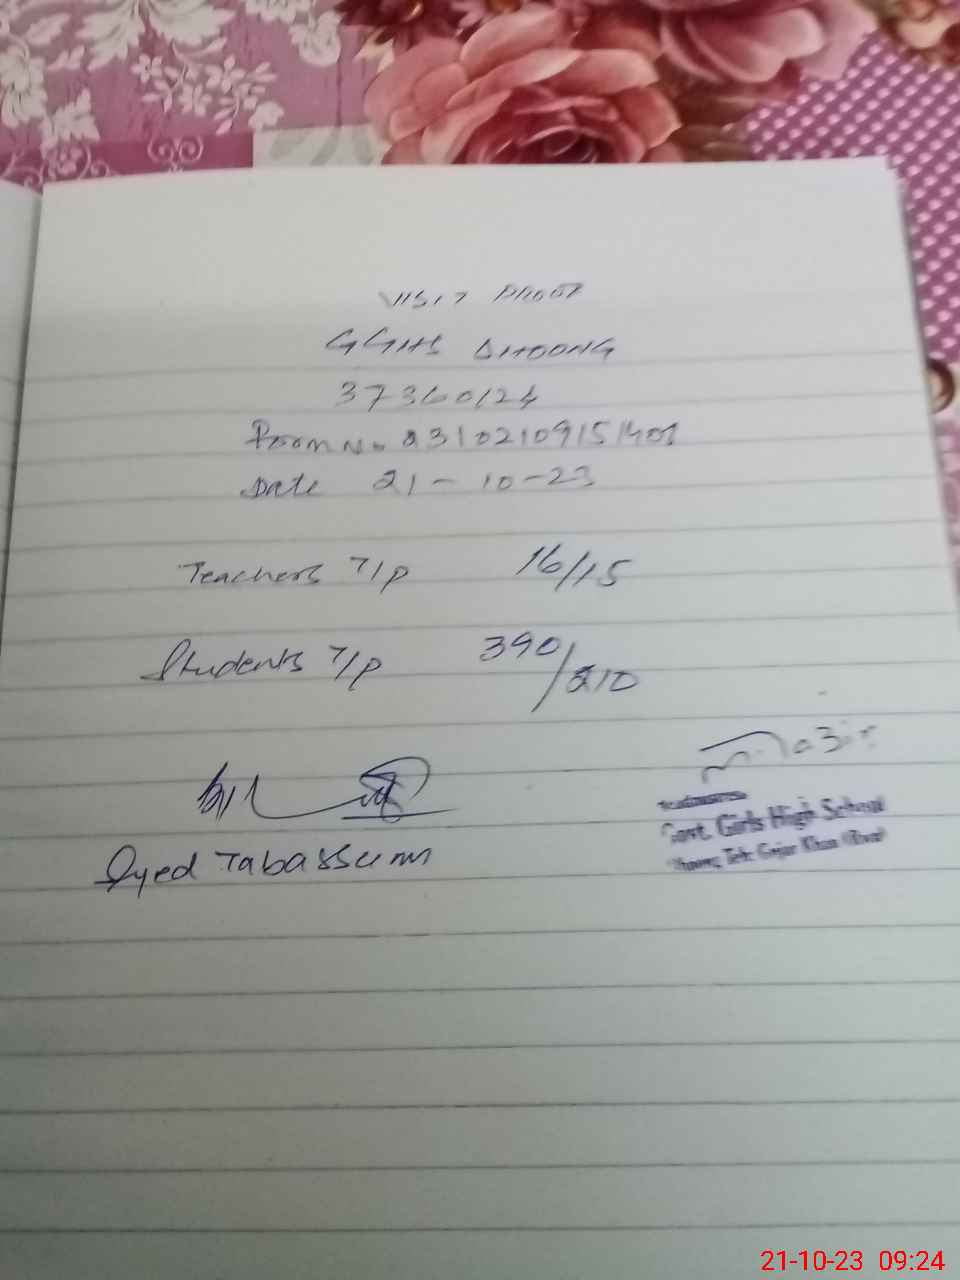 VISIT PROOF
GGHS DHOONG
37360124
Proom No. 23102109151401
Date 21-10-23
Teachers T/P 16/15
Students T/P 390/210
Syed Tabassum
Headmistress
Govt. Girls High School
Dhoong Teh: Gujar Khan (Rwp)
21-10-23 09:24